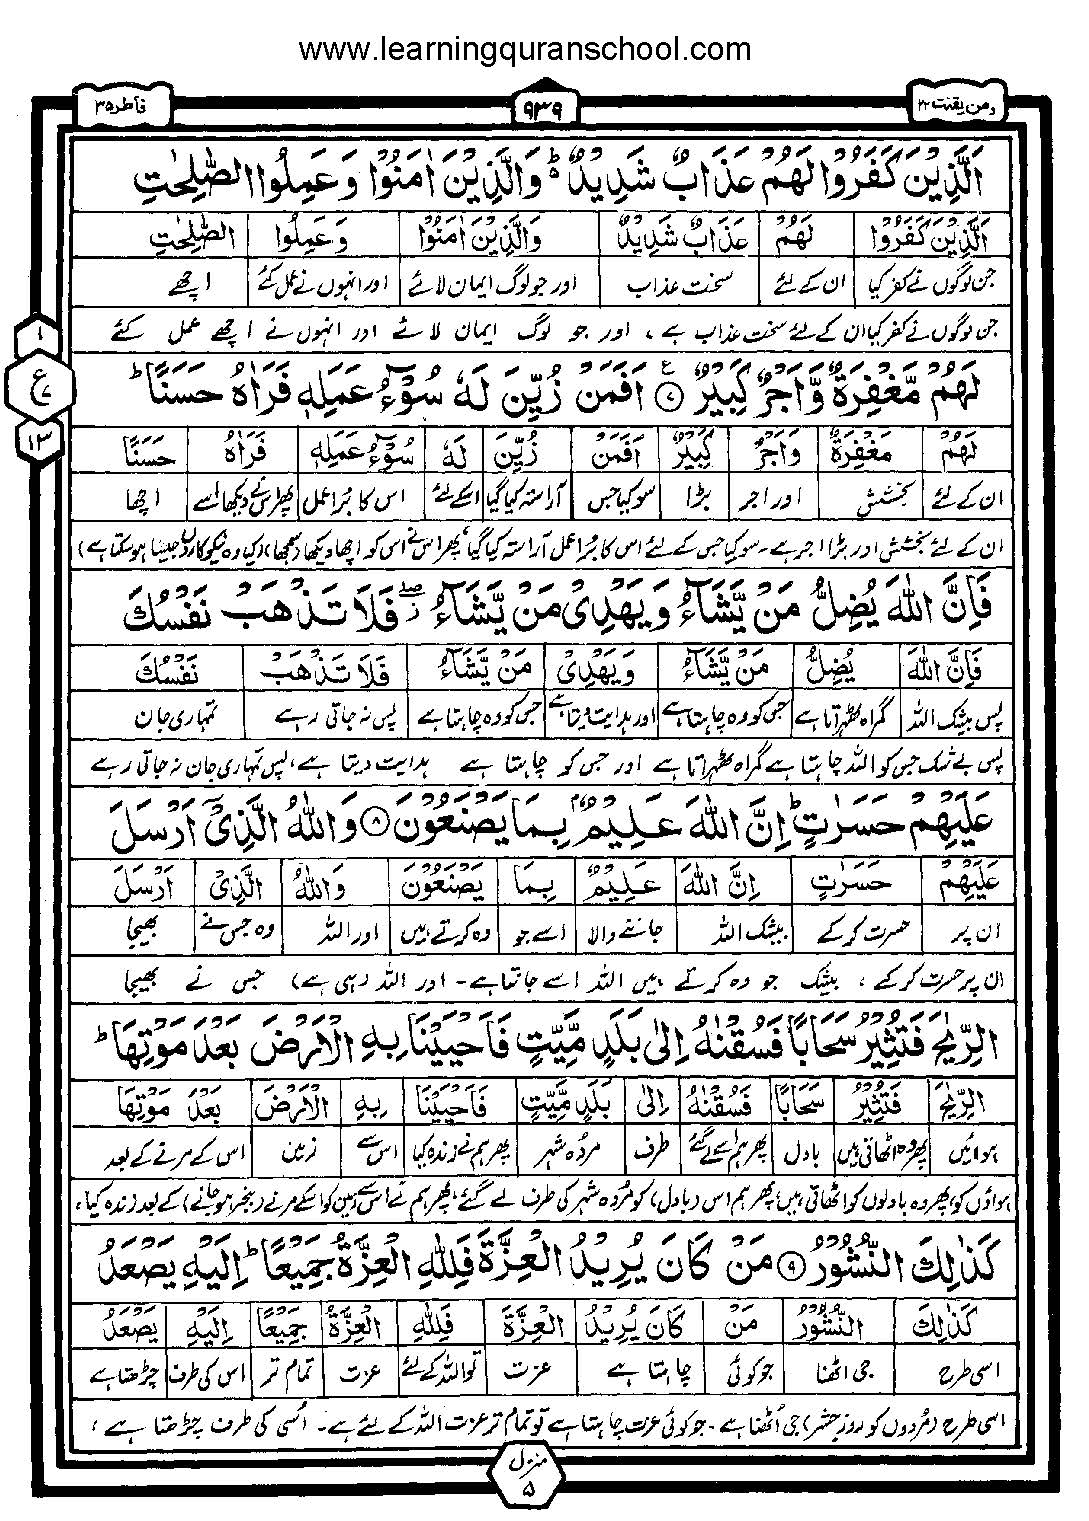 www.learningquranschool.com
ومن یقنت ۲۲
۹۳۹
فاطر ۳۵
اَلَّذِيْنَ كَفَرُوْا لَهُمْ عَذَابٌ شَدِيْدٌ ؕ وَالَّذِيْنَ اٰمَنُوْا وَعَمِلُوا الصّٰلِحٰتِ
اَلَّذِيْنَ كَفَرُوْا لَهُمْ عَذَابٌ شَدِيْدٌ وَالَّذِيْنَ اٰمَنُوْا وَعَمِلُوا الصّٰلِحٰتِ
جن لوگوں نے کفر کیا ان کے لئے سخت عذاب اور جو لوگ ایمان لائے اور انہوں نے عمل کئے اچھے
جن لوگوں نے کفر کیا ان کے لئے سخت عذاب ہے ، اور جو لوگ ایمان لائے اور انہوں نے اچھے عمل کئے
۱
ع
۷
۱۳
لَهُمْ مَّغْفِرَةٌ وَّاَجْرٌ كَبِيْرٌ ۷ اَفَمَنْ زُيِّنَ لَهٗ سُوْٓءُ عَمَلِهٖ فَرَاٰهُ حَسَنًا ؕ
لَهُمْ مَّغْفِرَةٌ وَّاَجْرٌ كَبِيْرٌ اَفَمَنْ زُيِّنَ لَهٗ سُوْٓءُ عَمَلِهٖ فَرَاٰهُ حَسَنًا
ان کے لئے بخشش اور اجر بڑا سو کیا جس آراستہ کیا گیا اسکے لئے اس کا بُرا عمل پھر اس نے دیکھا اسے اچھا
ان کے لئے بخشش اور بڑا اجر ہے۔ سو کیا جس کے لئے اس کا بُرا عمل آراستہ کیا گیا، پھر اس نے اس کو اچھا دیکھا (سمجھا) (کیا وہ نیکوکاروں جیسا ہو سکتا ہے)
فَاِنَّ اللّٰهَ يُضِلُّ مَنْ يَّشَآءُ وَيَهْدِىْ مَنْ يَّشَآءُ ۖ فَلَا تَذْهَبْ نَفْسُكَ
فَاِنَّ اللّٰهَ يُضِلُّ مَنْ يَّشَآءُ وَيَهْدِىْ مَنْ يَّشَآءُ فَلَا تَذْهَبْ نَفْسُكَ
پس بیشک اللہ گمراہ ٹھہراتا ہے جس کو وہ چاہتا ہے اور ہدایت دیتا ہے جس کو وہ چاہتا ہے پس نہ جاتی رہے تمہاری جان
پس بے شک جس کو اللہ چاہتا ہے گمراہ ٹھہراتا ہے اور جس کو چاہتا ہے ہدایت دیتا ہے، پس تمہاری جان نہ جاتی رہے
عَلَيْهِمْ حَسَرٰتٍ ؕ اِنَّ اللّٰهَ عَلِيْمٌۢ بِمَا يَصْنَعُوْنَ ۸ وَاللّٰهُ الَّذِىْٓ اَرْسَلَ
عَلَيْهِمْ حَسَرٰتٍ اِنَّ اللّٰهَ عَلِيْمٌ بِمَا يَصْنَعُوْنَ وَاللّٰهُ الَّذِىْ اَرْسَلَ
ان پر حسرت کر کے بیشک اللہ جاننے والا اسے جو وہ کرتے ہیں اور اللہ وہ جس نے بھیجا
ان پر حسرت کر کے ، بیشک جو وہ کرتے ہیں اللہ اسے جانتا ہے۔ اور اللہ (وہی ہے) جس نے بھیجا
الرِّيٰحَ فَتُثِيْرُ سَحَابًا فَسُقْنٰهُ اِلٰى بَلَدٍ مَّيِّتٍ فَاَحْيَيْنَا بِهِ الْاَرْضَ بَعْدَ مَوْتِهَا ؕ
الرِّيٰحَ فَتُثِيْرُ سَحَابًا فَسُقْنٰهُ اِلٰى بَلَدٍ مَّيِّتٍ فَاَحْيَيْنَا بِهِ الْاَرْضَ بَعْدَ مَوْتِهَا
ہوائیں پھر وہ اٹھاتی ہیں بادل پھر ہم اسے لے گئے طرف مردہ شہر پھر ہم نے زندہ کیا اس سے زمین اس کے مرنے کے بعد
ہواؤں کو، پھر وہ بادلوں کو اٹھاتی ہیں، پھر ہم اس (بادل) کو مُردہ شہر کی طرف لے گئے، پھر ہم نے اس سے زمین کو اسکے مرنے (بنجر ہو جانے) کے بعد زندہ کیا،
كَذٰلِكَ النُّشُوْرُ ۹ مَنْ كَانَ يُرِيْدُ الْعِزَّةَ فَلِلّٰهِ الْعِزَّةُ جَمِيْعًا ؕ اِلَيْهِ يَصْعَدُ
كَذٰلِكَ النُّشُوْرُ مَنْ كَانَ يُرِيْدُ الْعِزَّةَ فَلِلّٰهِ الْعِزَّةُ جَمِيْعًا اِلَيْهِ يَصْعَدُ
اسی طرح جی اٹھنا جو کوئی چاہتا ہے عزت تو اللہ کے لئے عزت تمام تر اس کی طرف چڑھتا ہے
اسی طرح (مُردوں کو روز حشر) جی اُٹھنا ہے۔ جو کوئی عزت چاہتا ہے تو تمام تر عزت اللہ کے لئے ہے۔ اُسی کی طرف چڑھتا ہے ،
منزل
۵